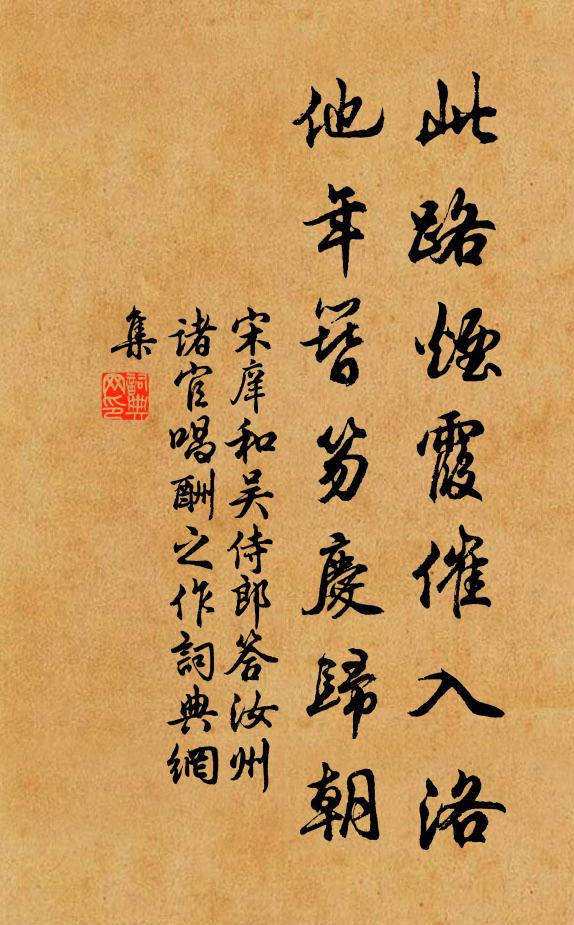 此路煙霞催入洛
他年簪笏慶歸朝
宋庠和吴侍郎答汝州
诸官唱酬之作詞典網
集
詞典
网印